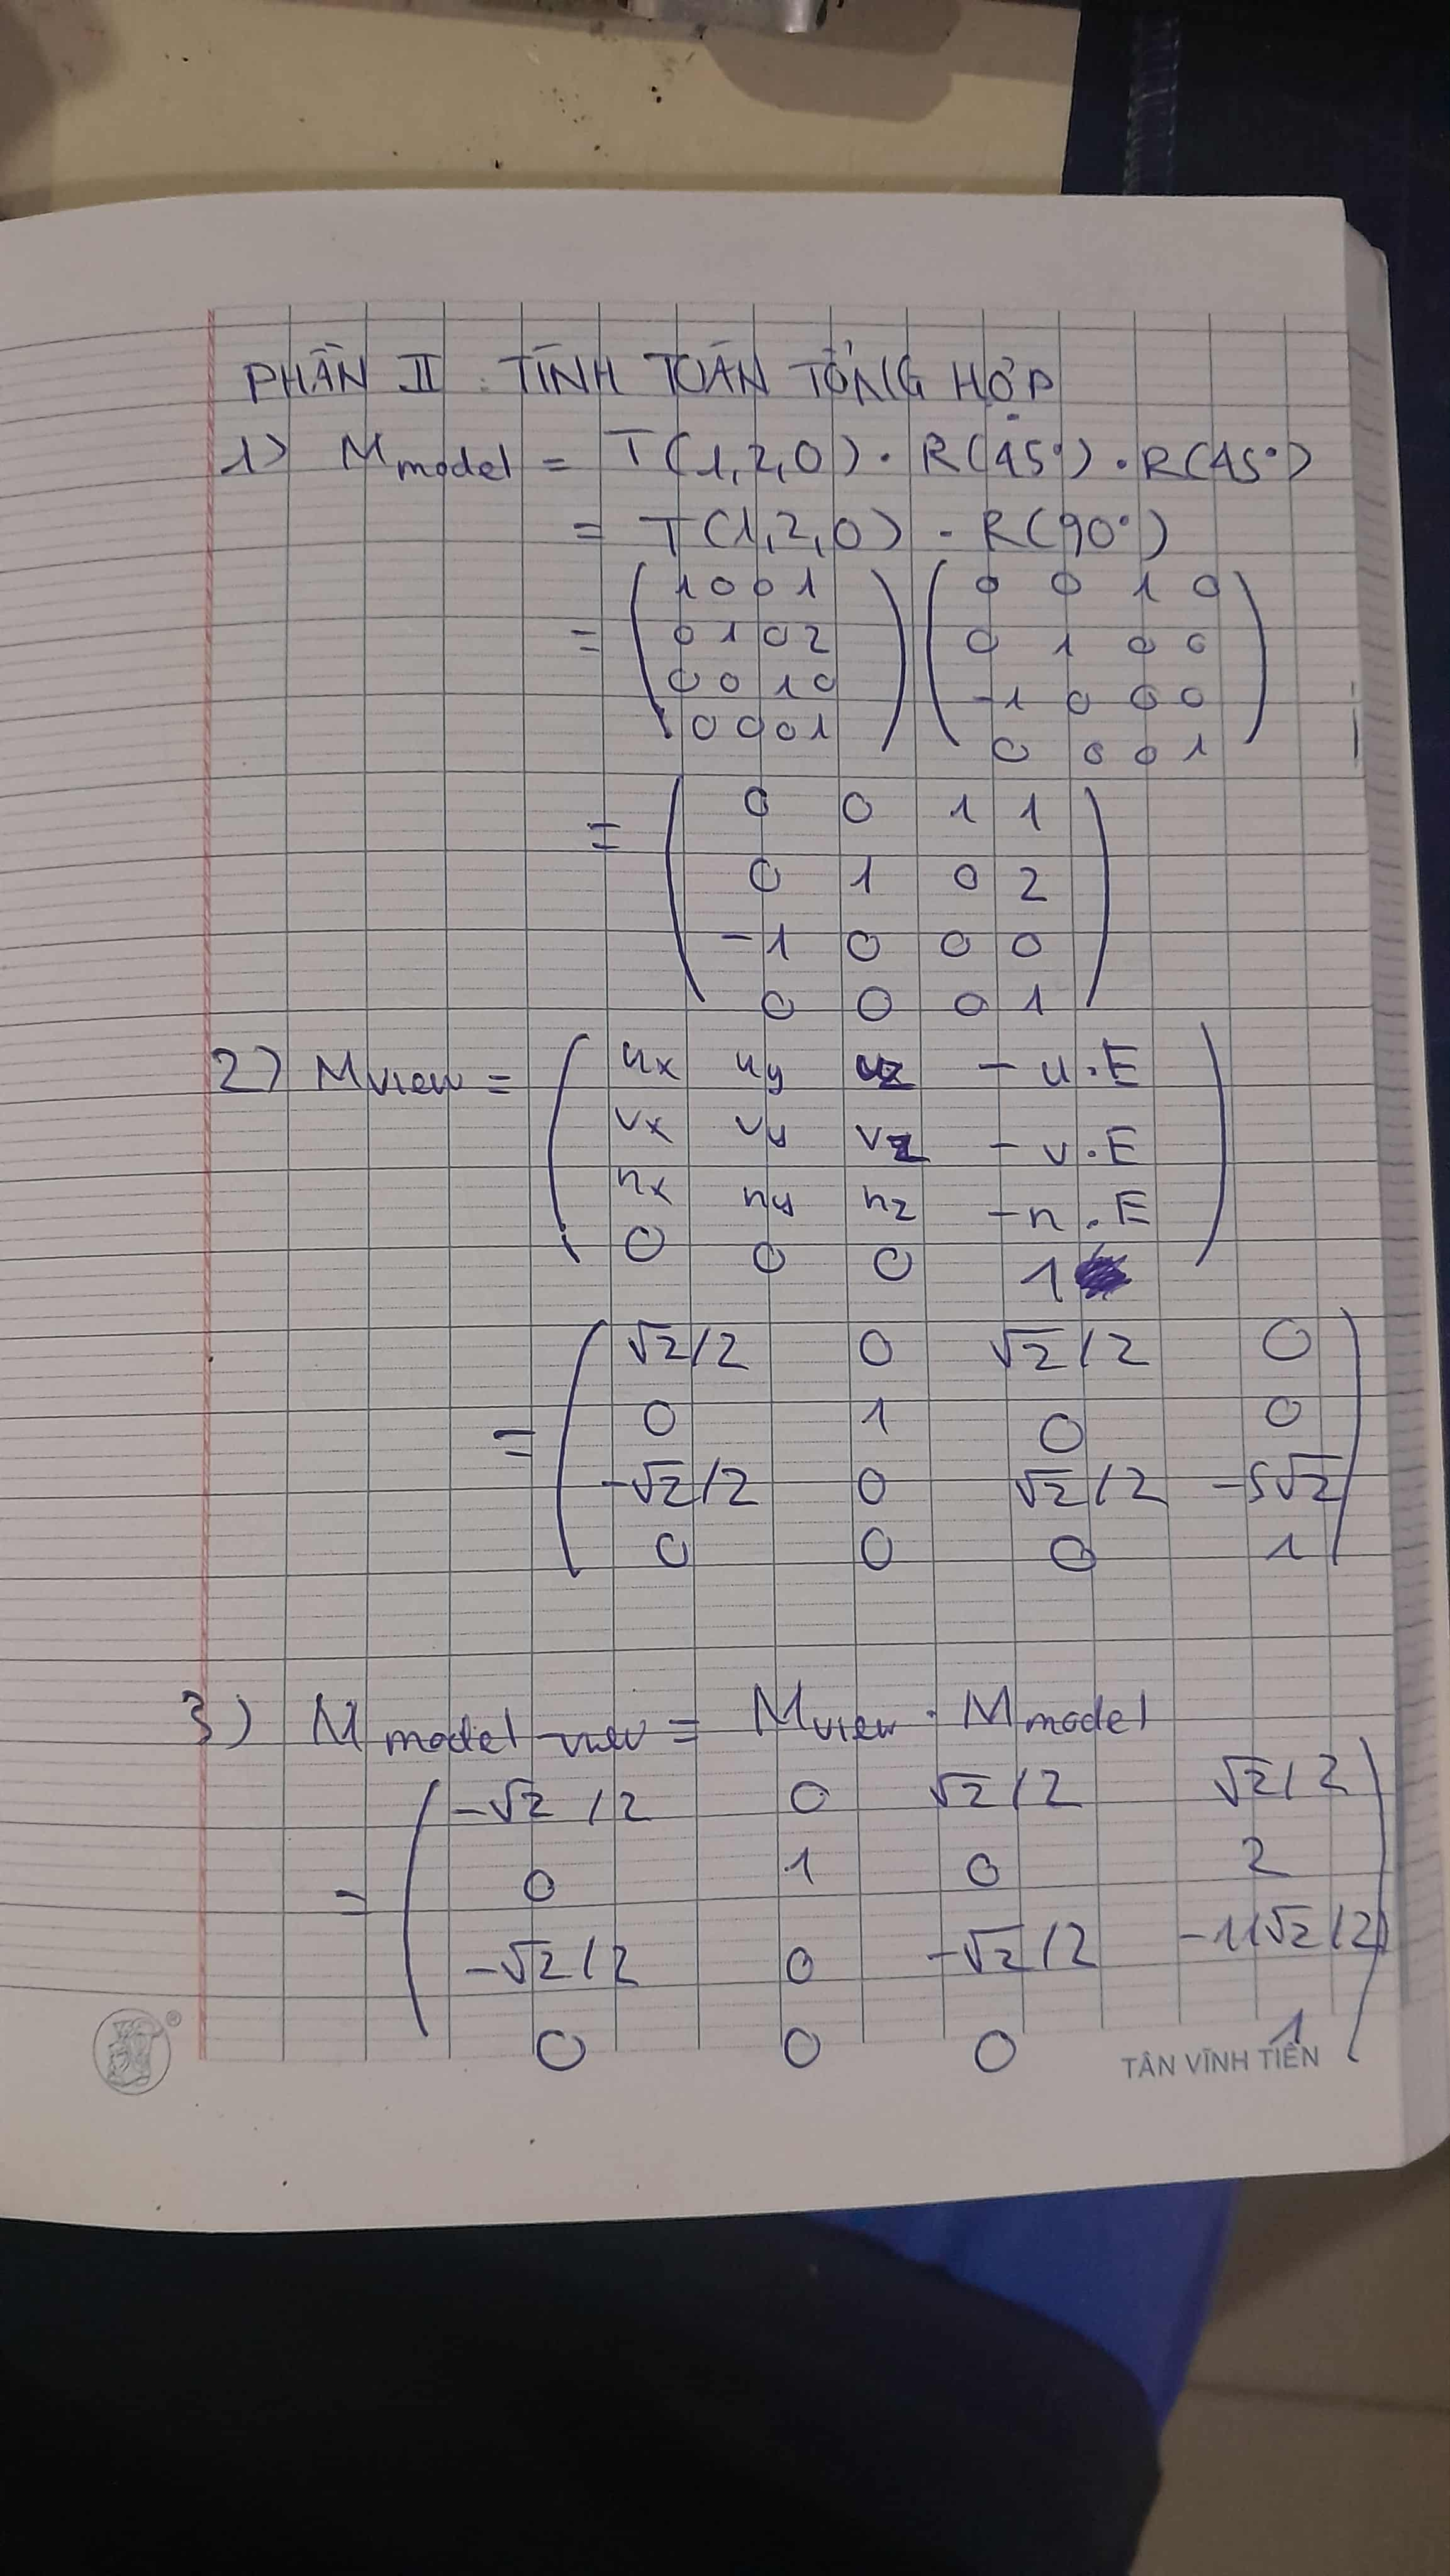 PHẦN II : TÍNH TOÁN TỔNG HỢP
1) Mmodel = T(1,2,0) . R(45°) . R(45°)
= T(1,2,0) . R(90°)
= ( 1 0 0 1 ) ( 0 0 1 0 )
0 1 0 2 0 1 0 0
0 0 1 0 -1 0 0 0
0 0 0 1 0 0 0 1
= ( 0 0 1 1 )
0 1 0 2
-1 0 0 0
0 0 0 1
2) Mview = ( ux uy uz -u.E )
vx vy vz -v.E
nx ny nz -n.E
0 0 0 1
= ( √2/2 0 √2/2 0 )
0 1 0 0
-√2/2 0 √2/2 -5√2
0 0 0 1
3) Mmodel-view = Mview . Mmodel
= ( -√2/2 0 √2/2 √2/2 )
0 1 0 2
-√2/2 0 -√2/2 -11√2/2
0 0 0 1
TÂN VĨNH TIẾN
®